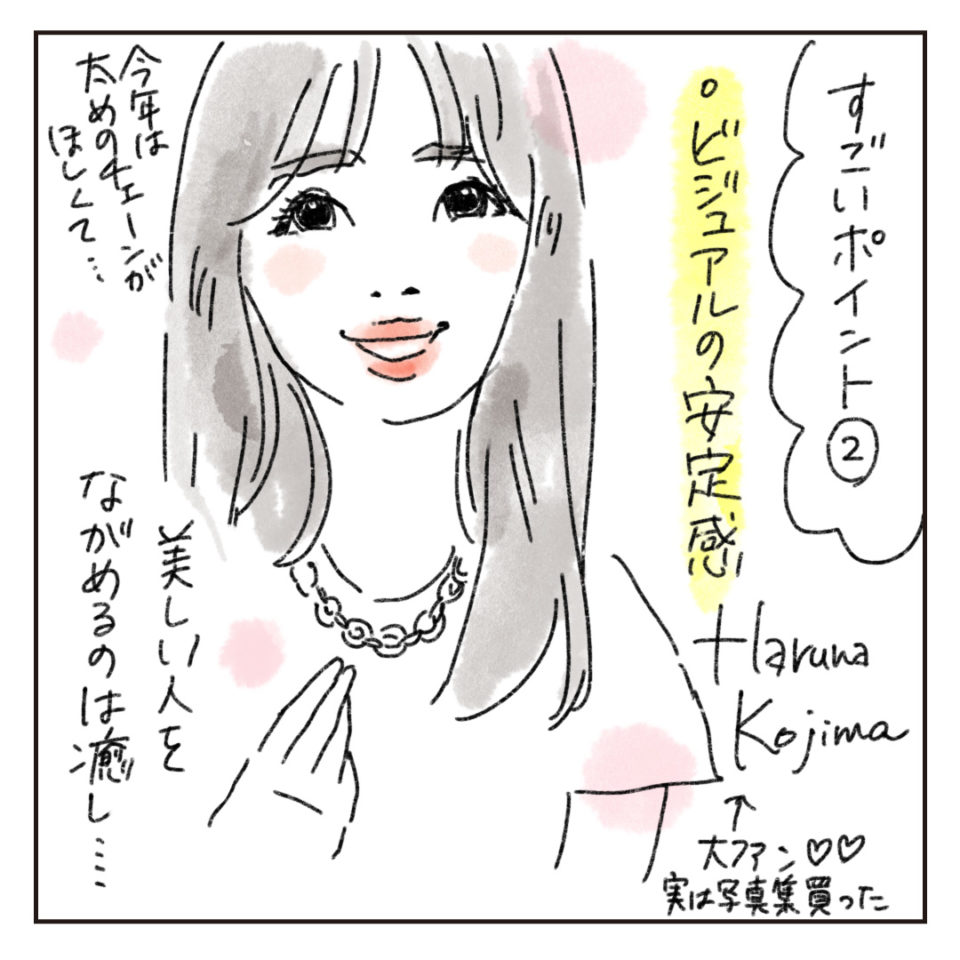 すごいポイント②
・ビジュアルの安定感
Haruna
Kojima
↑
大ファン♡♡
実は写真集買った
今年は
太めのチェーンが
ほしくて…
美しい人を
ながめるのは癒し……